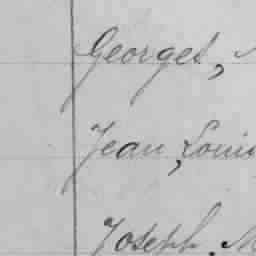 Georges,
Jean, Louis
Joseph, M